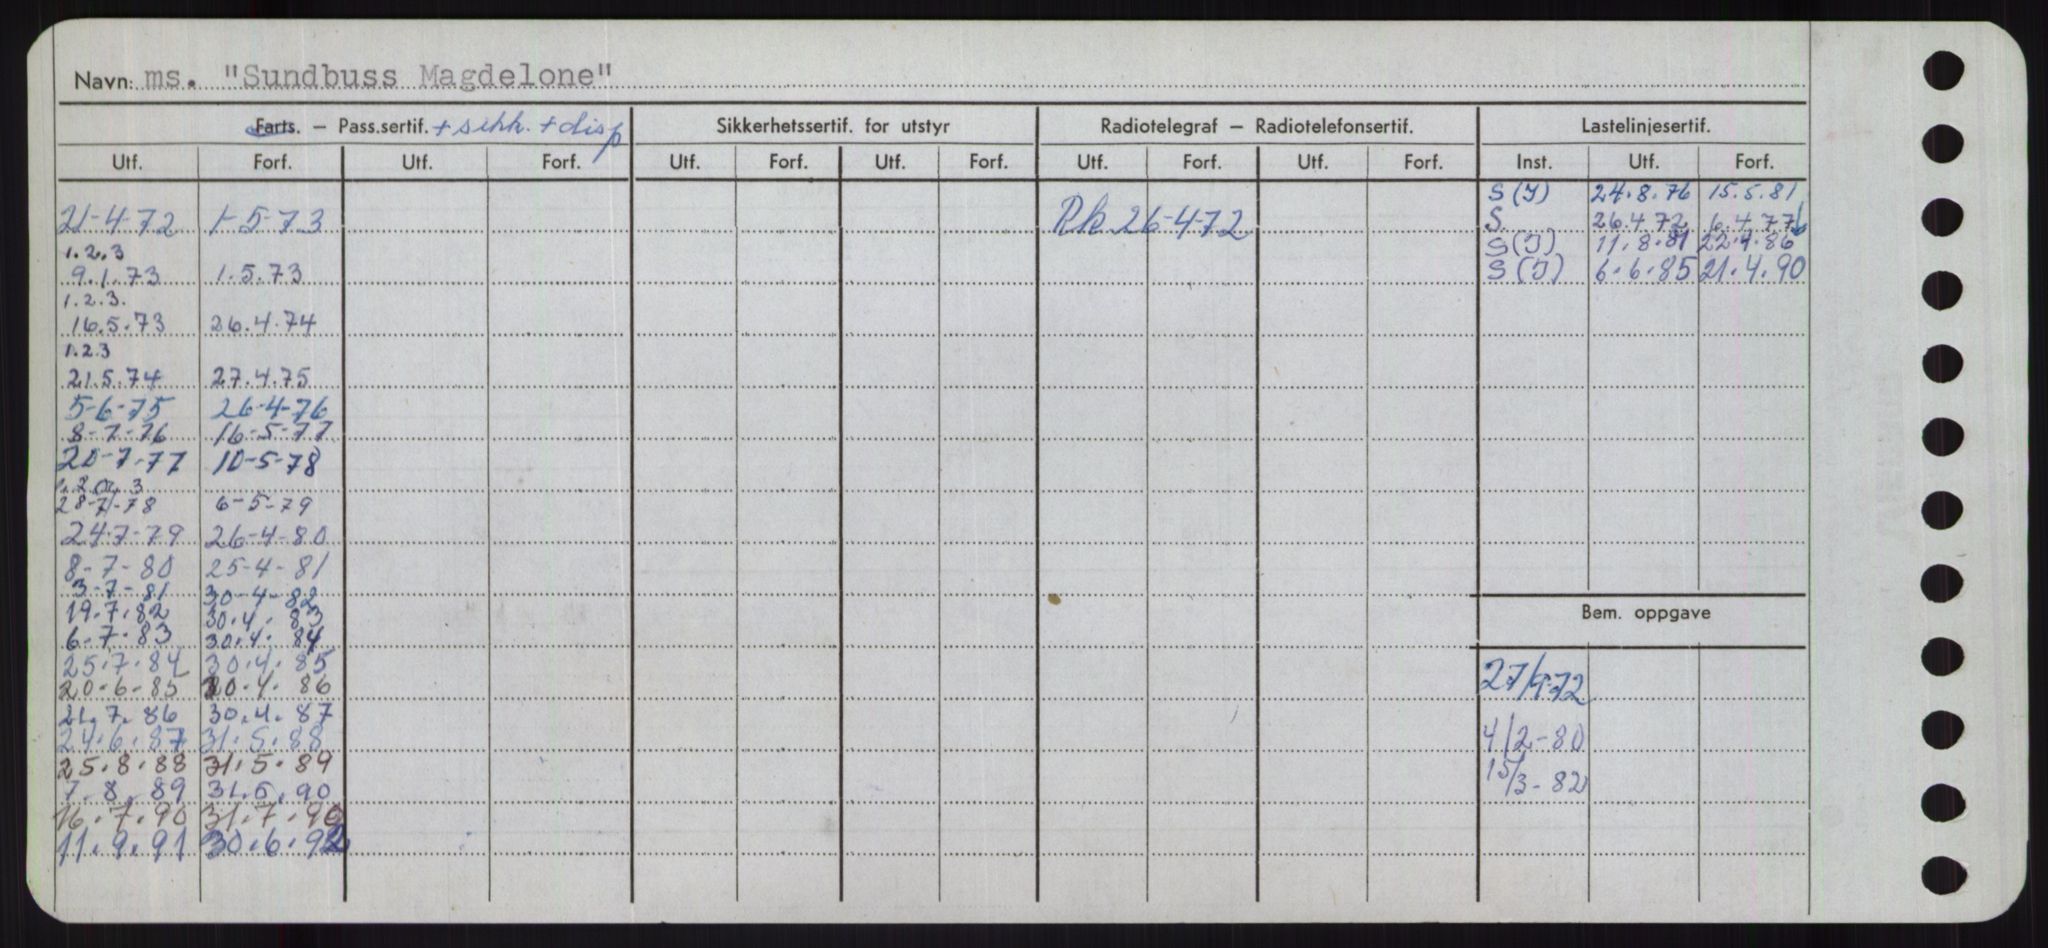 Navn: ms. "Sundbuss Magdelone"
Farts. – Pass.sertif. + sikk. + disp
Sikkerhetssertif. for utstyr
Radiotelegraf – Radiotelefonsertif.
Lastelinjesertif.
Utf. Forf. Utf. Forf. Utf. Forf. Utf. Forf. Utf. Forf. Utf. Forf. Inst. Utf. Forf.
S (I) 24.8.76 15.5.81
21-4-72 1-5-73 Rk 26-4-72 S. 26.4.72 6.4.77
1.2.3 S (I) 11.8.81 22.4.86
9.1.73 1.5.73 S (I) 6.6.85 21.4.90
1.2.3.
16.5.73 26.4.74
1.2.3
21.5.74 27.4.75
5-6-75 26-4-76
8-7-76 16-5-77
20-7-77 10-5-78
1.2.og 3
28-7-78 6-5-79
24-7-79 26-4-80
8-7-80 25-4-81
3-7-81 30-4-82
19.7.82 30.4.83
Bem. oppgave
6-7-83 30.4.84
25.7.84 30.4.85
20.6.85 30.4.86
27/9-72
21.7.86 30.4.87
24.6.87 31.5.88
4/2-80
25.8.88 31.5.89
15/3-82
7.8.89 31.5.90
16.7.90 31.7.90
11.9.91 30.6.92